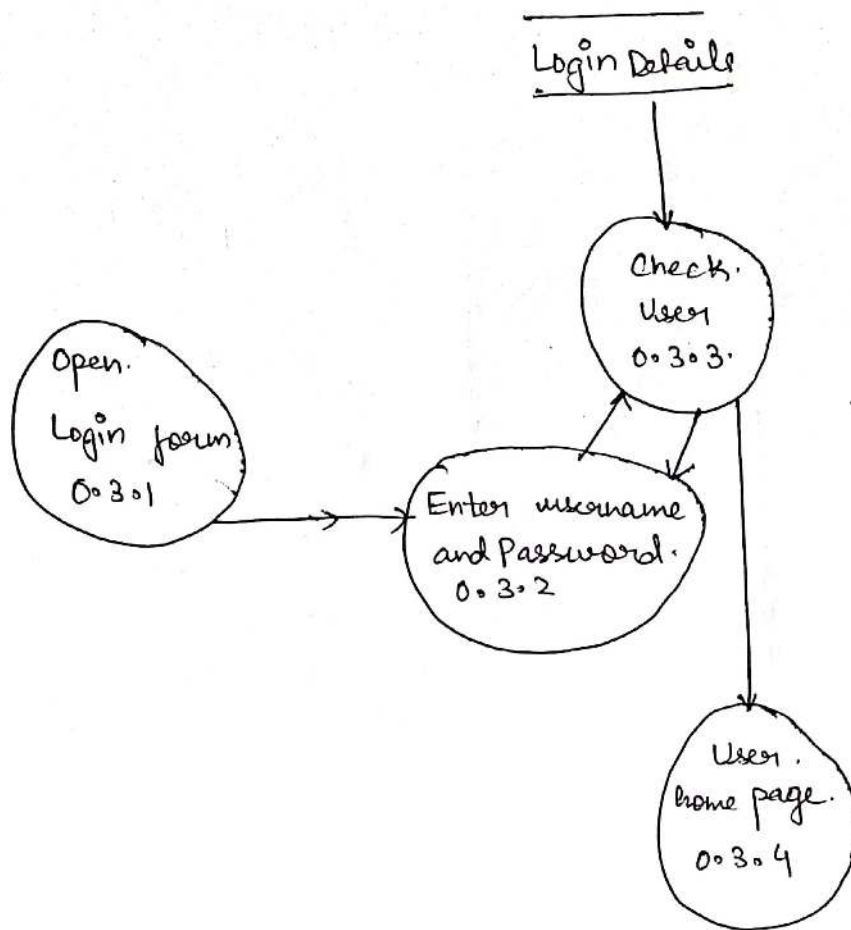 Login Details
Check.
User
0.3.3.
Open.
Login form
0.3.1
Enter username
and Password.
0.3.2
User.
home page.
0.3.4